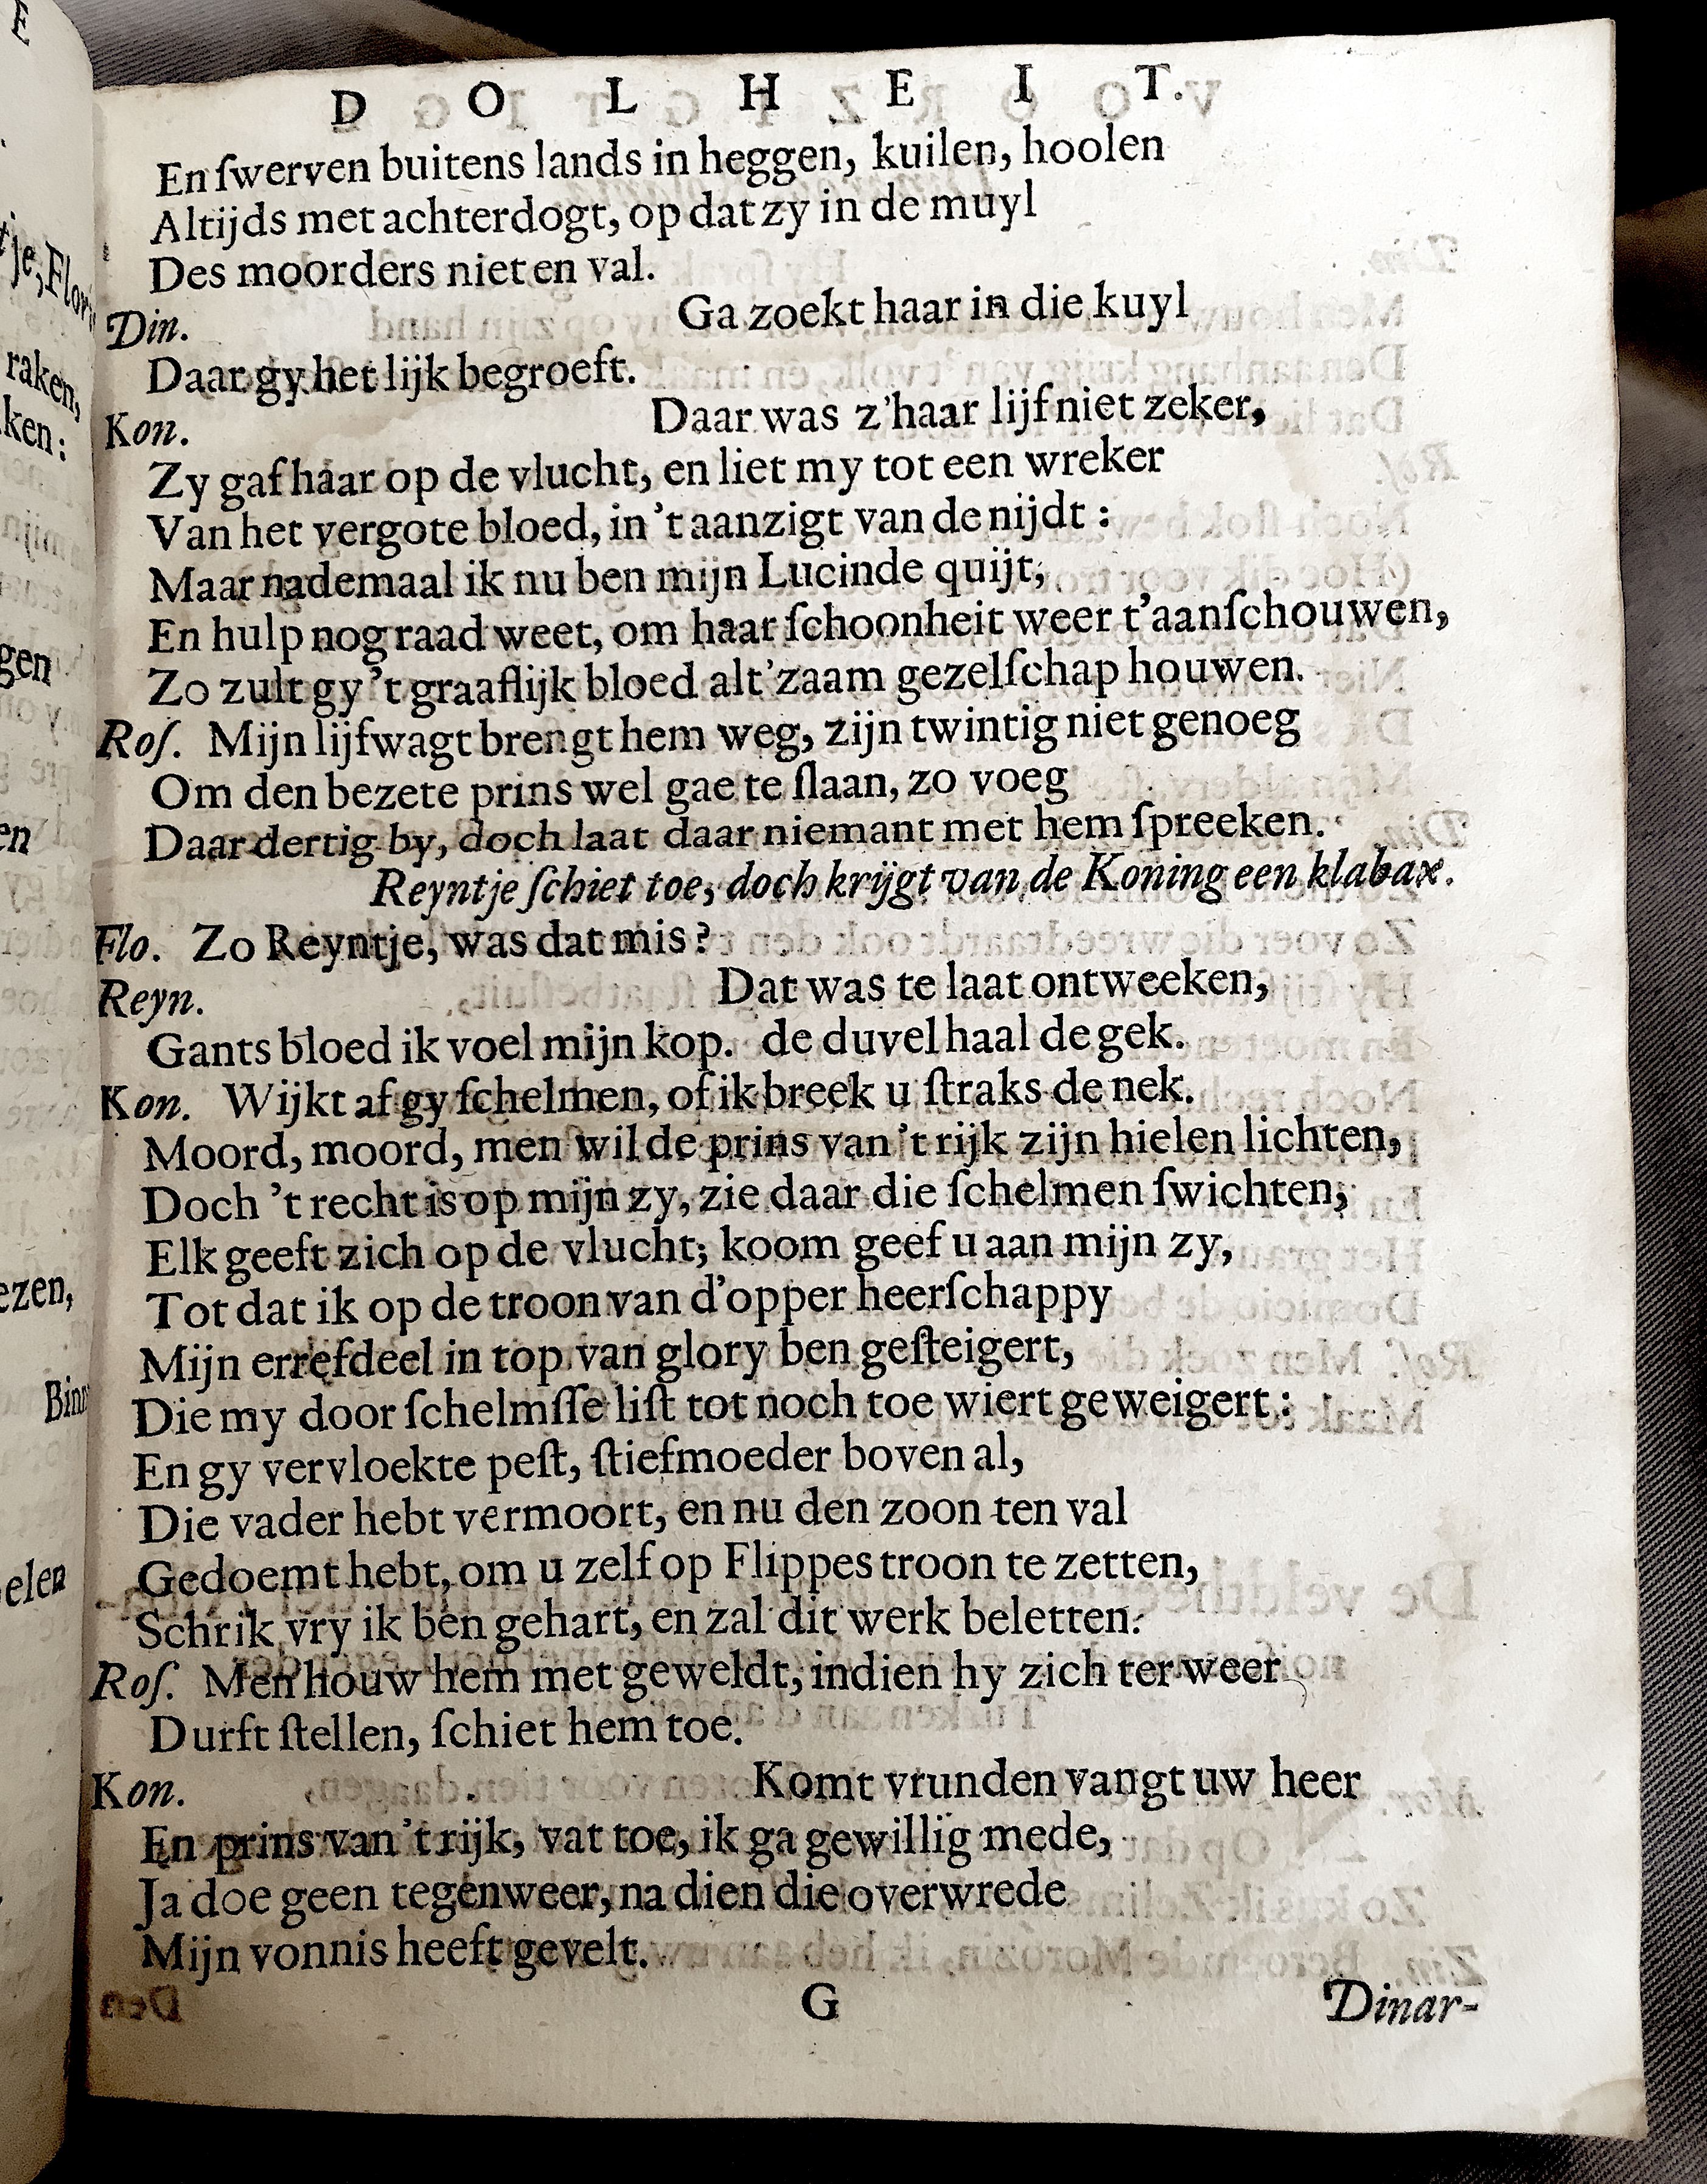 D O L H E I T.
En ſwerven buitens lands in heggen, kuilen, hoolen
Altijds met achterdogt, op dat zy in de muyl
Des moorders niet en val.
Din. Ga zoekt haar in die kuyl
Daar gy het lijk begroeft.
Kon. Daar was z'haar lijf niet zeker,
Zy gaf haar op de vlucht, en liet my tot een wreker
Van het vergote bloed, in 't aanzigt van de nijdt:
Maar nademaal ik nu ben mijn Lucinde quijt,
En hulp nog raad weet, om haar ſchoonheit weer t'aanſchouwen,
Zo zult gy 't graaflijk bloed alt'zaam gezelſchap houwen.
Roſ. Mijn lijfwagt brengt hem weg, zijn twintig niet genoeg
Om den bezete prins wel gae te ſlaan, zo voeg
Daar dertig by, doch laat daar niemant met hem ſpreeken.
Reyntje ſchiet toe, doch krijgt van de Koning een klabax.
Flo. Zo Reyntje, was dat mis?
Reyn. Dat was te laat ontweeken,
Gants bloed ik voel mijn kop. de duvel haal de gek.
Kon. Wijkt af gy ſchelmen, of ik breek u ſtraks de nek.
Moord, moord, men wil de prins van 't rijk zijn hielen lichten,
Doch 't recht is op mijn zy, zie daar die ſchelmen ſwichten,
Elk geeft zich op de vlucht; koom geef u aan mijn zy,
Tot dat ik op de troon van d'opper heerſchappy
Mijn errefdeel in top van glory ben geſteigert,
Die my door ſchelmſſe liſt tot noch toe wiert geweigert:
En gy vervloekte peſt, ſtiefmoeder boven al,
Die vader hebt vermoort, en nu den zoon ten val
Gedoemt hebt, om u zelf op Flippes troon te zetten,
Schrik vry ik ben gehart, en zal dit werk beletten.
Roſ. Men houw hem met geweldt, indien hy zich ter weer
Durft ſtellen, ſchiet hem toe.
Kon. Komt vrunden vangt uw heer
En prins van 't rijk, vat toe, ik ga gewillig mede,
Ja doe geen tegenweer, na dien die overwrede
Mijn vonnis heeft gevelt.
G Dinar-